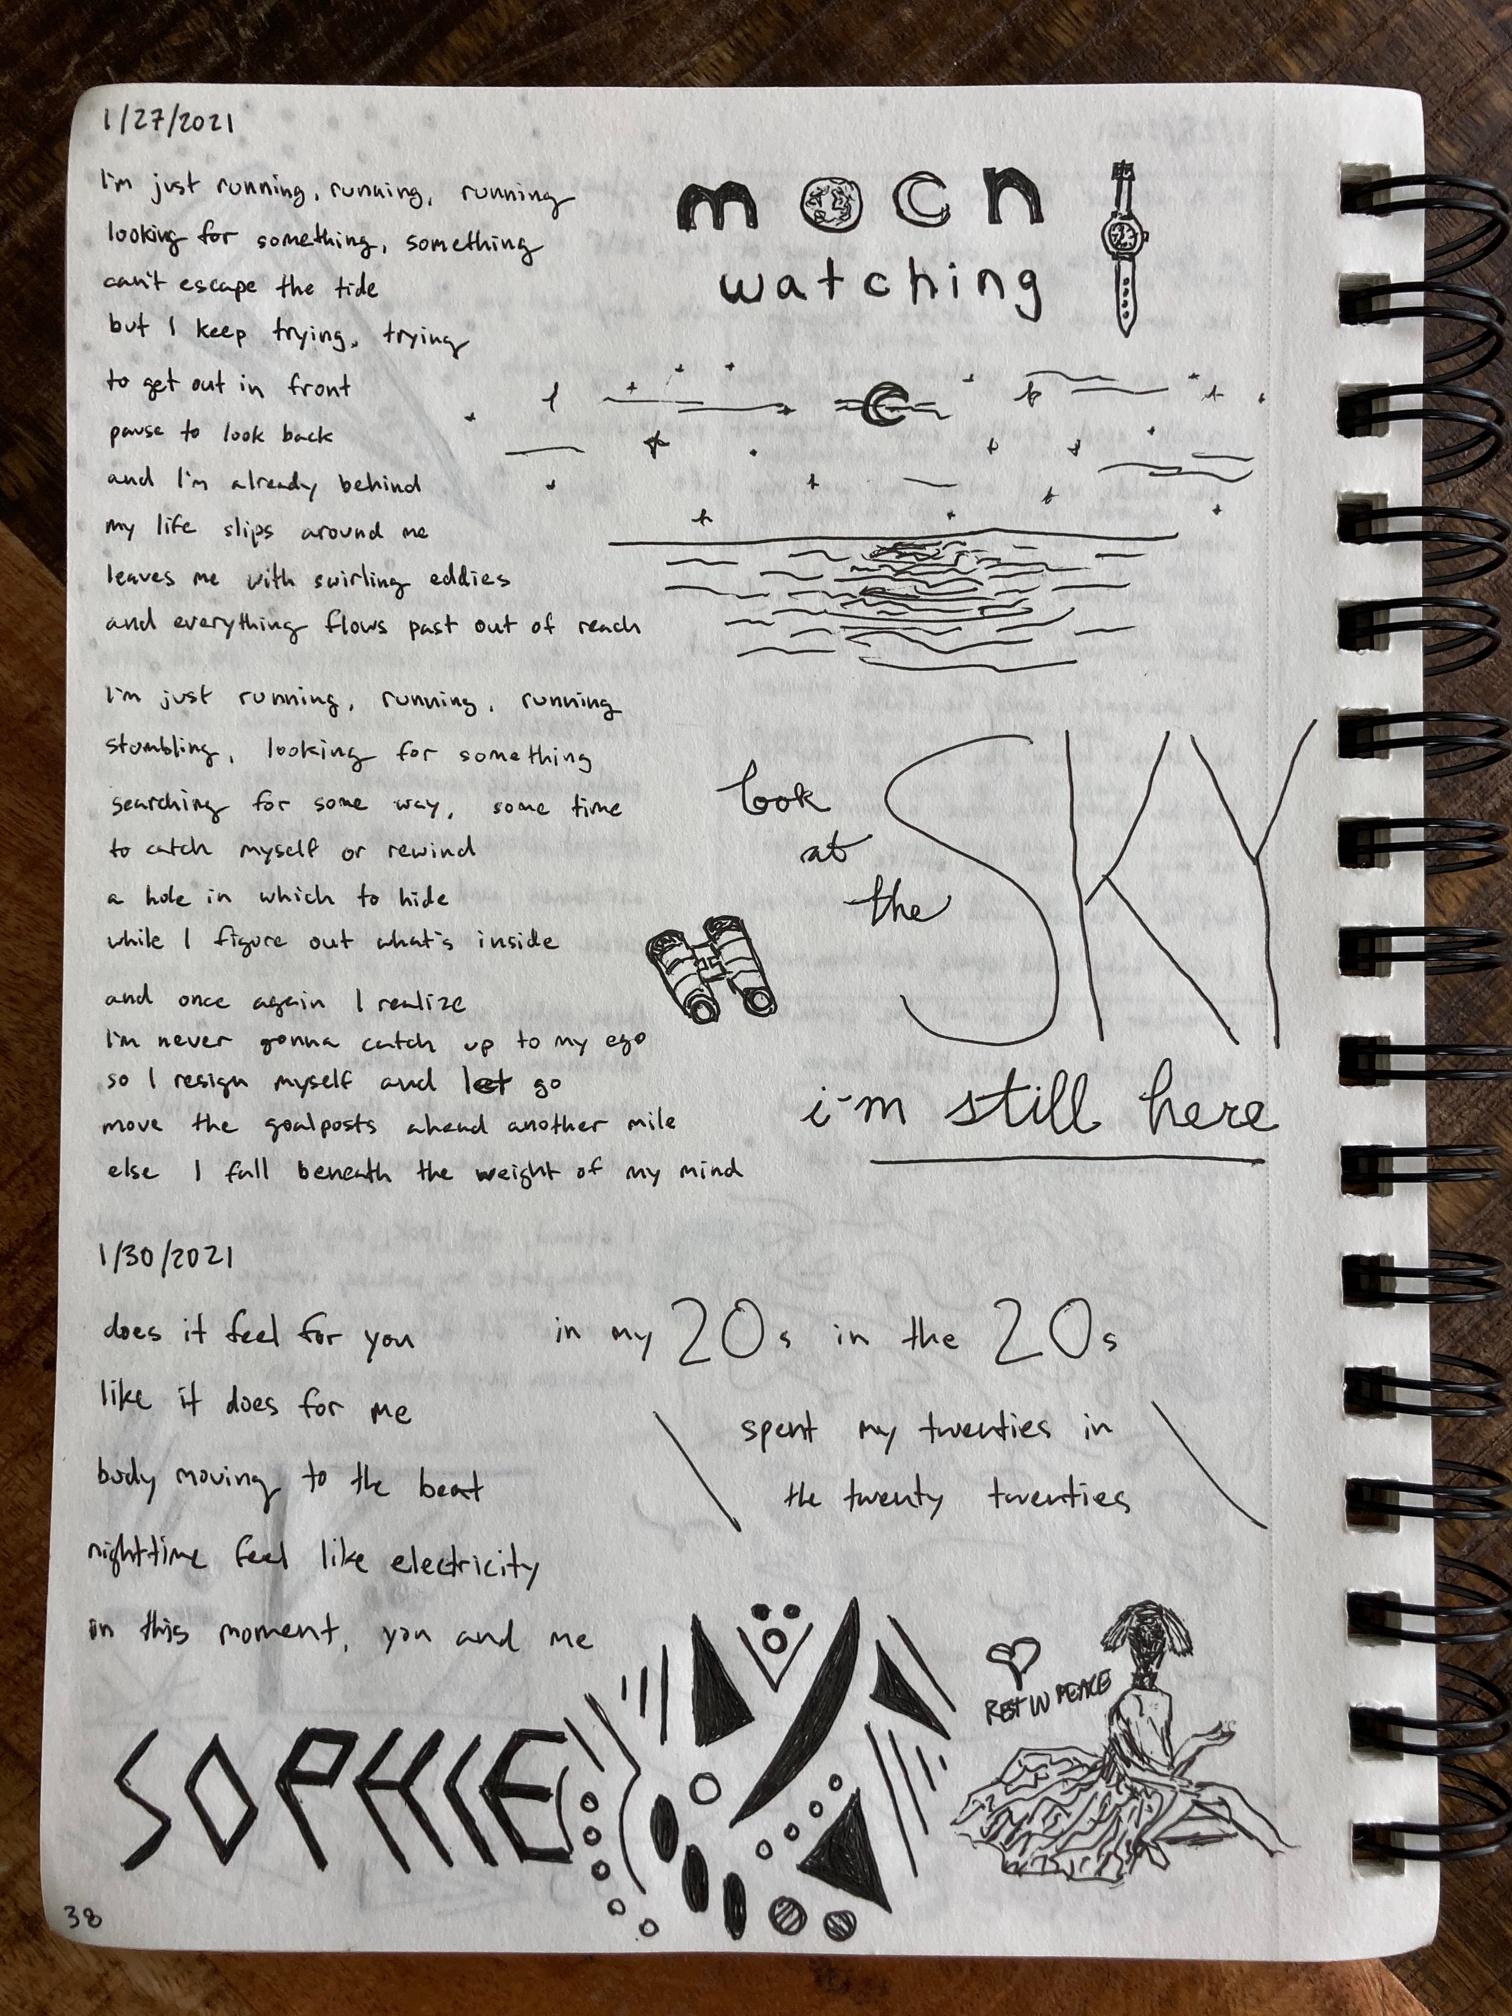 1/27/2021
I'm just running, running, running
looking for something, something
can't escape the tide
but I keep trying, trying
to get out in front
pause to look back
and I'm already behind
my life slips around me
leaves me with swirling eddies
and everything flows past out of reach
I'm just running, running, running
stumbling, looking for something
searching for some way, some time
to catch myself or rewind
a hole in which to hide
while I figure out what's inside
and once again I realize
I'm never gonna catch up to my ego
so I resign myself and let go
move the goalposts ahead another mile
else I fall beneath the weight of my mind
moon
watching
look
at
the
SKY
i'm still here
1/30/2021
does it feel for you
like it does for me
body moving to the beat
nighttime feel like electricity
in this moment, you and me
in my 20s in the 20s
spent my twenties in
the twenty twenties
SOPHIE
REST IN PEACE
38